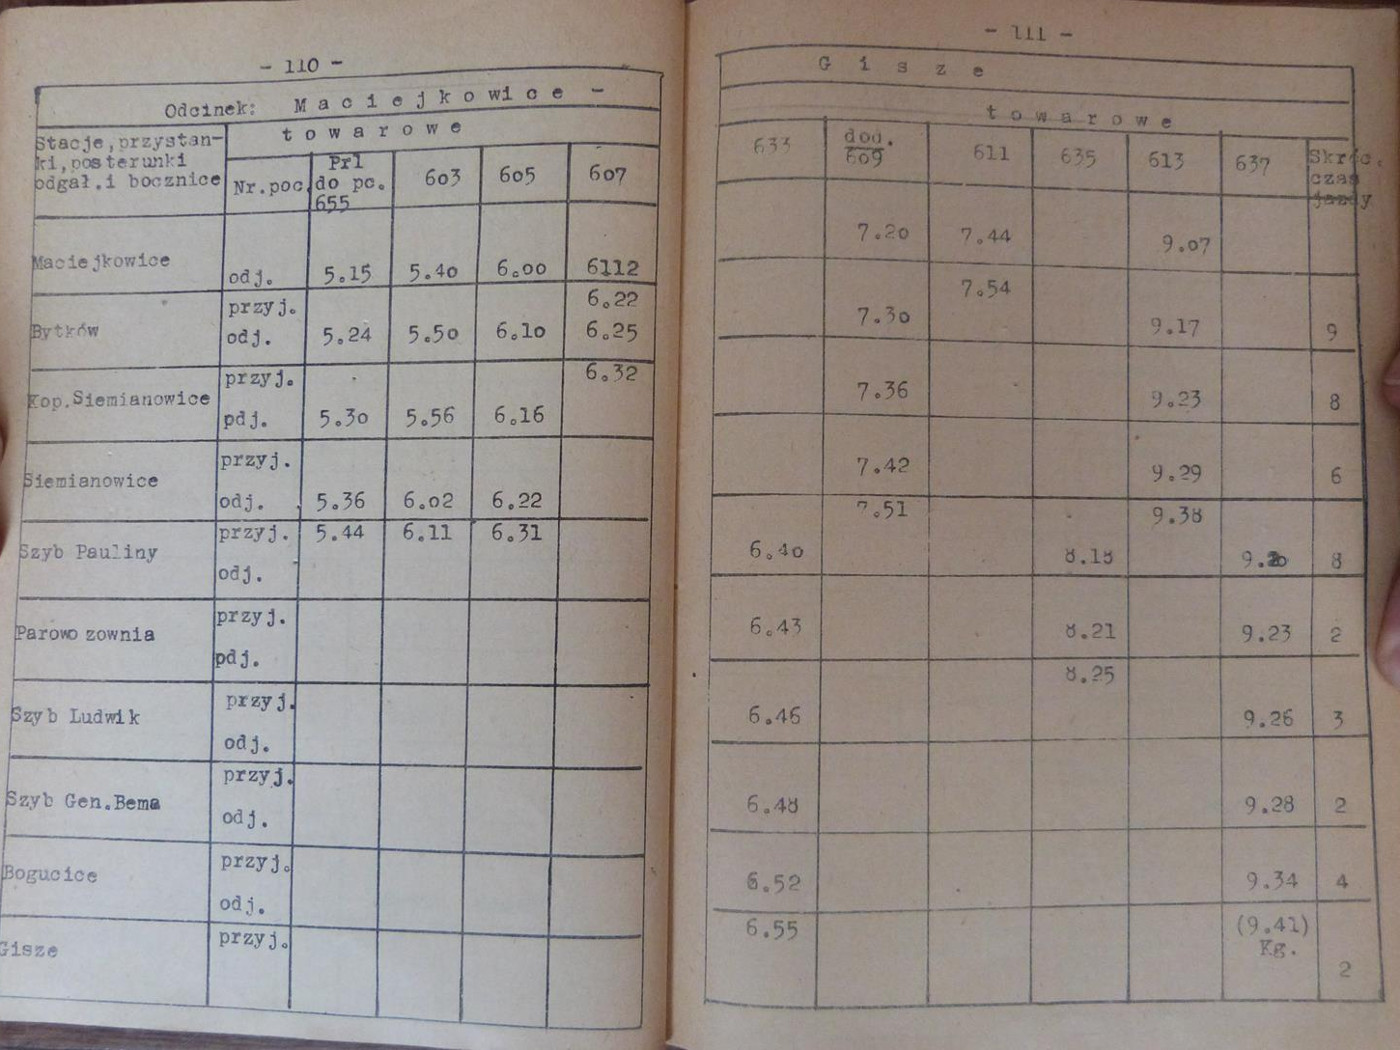 - 110 -
Odcinek: Maciejkowice -
Stacje,przystan-
ki,posterunki
odgał.i bocznice
towarowe
Nr.poc. Prl do pc. 655 603 605 607
Maciejkowice odj. 5.15 5.40 6.00 6112
Bytków przyj. 6.22
odj. 5.24 5.50 6.10 6.25
Kop.Siemianowice przyj. 6.32
pdj. 5.30 5.56 6.16
Siemianowice przyj.
odj. 5.36 6.02 6.22
Szyb Pauliny przyj. 5.44 6.11 6.31
odj.
Parowozownia przyj.
pdj.
Szyb Ludwik przyj.
odj.
Szyb Gen.Bema przyj.
odj.
Bogucice przyj.
odj.
Gisze przyj.
- 111 -
Gisze
towarowe
633 dod. 609 611 635 613 637 Skróc. czas jazdy
7.20 7.44 9.07
7.54
7.30 9.17 9
7.36 9.23 8
7.42 9.29 6
7.51 9.38
6.40 8.18 9.20 8
6.43 8.21 9.23 2
8.25
6.46 9.26 3
6.48 9.28 2
6.52 9.34 4
6.55 (9.41)
Kg.
2